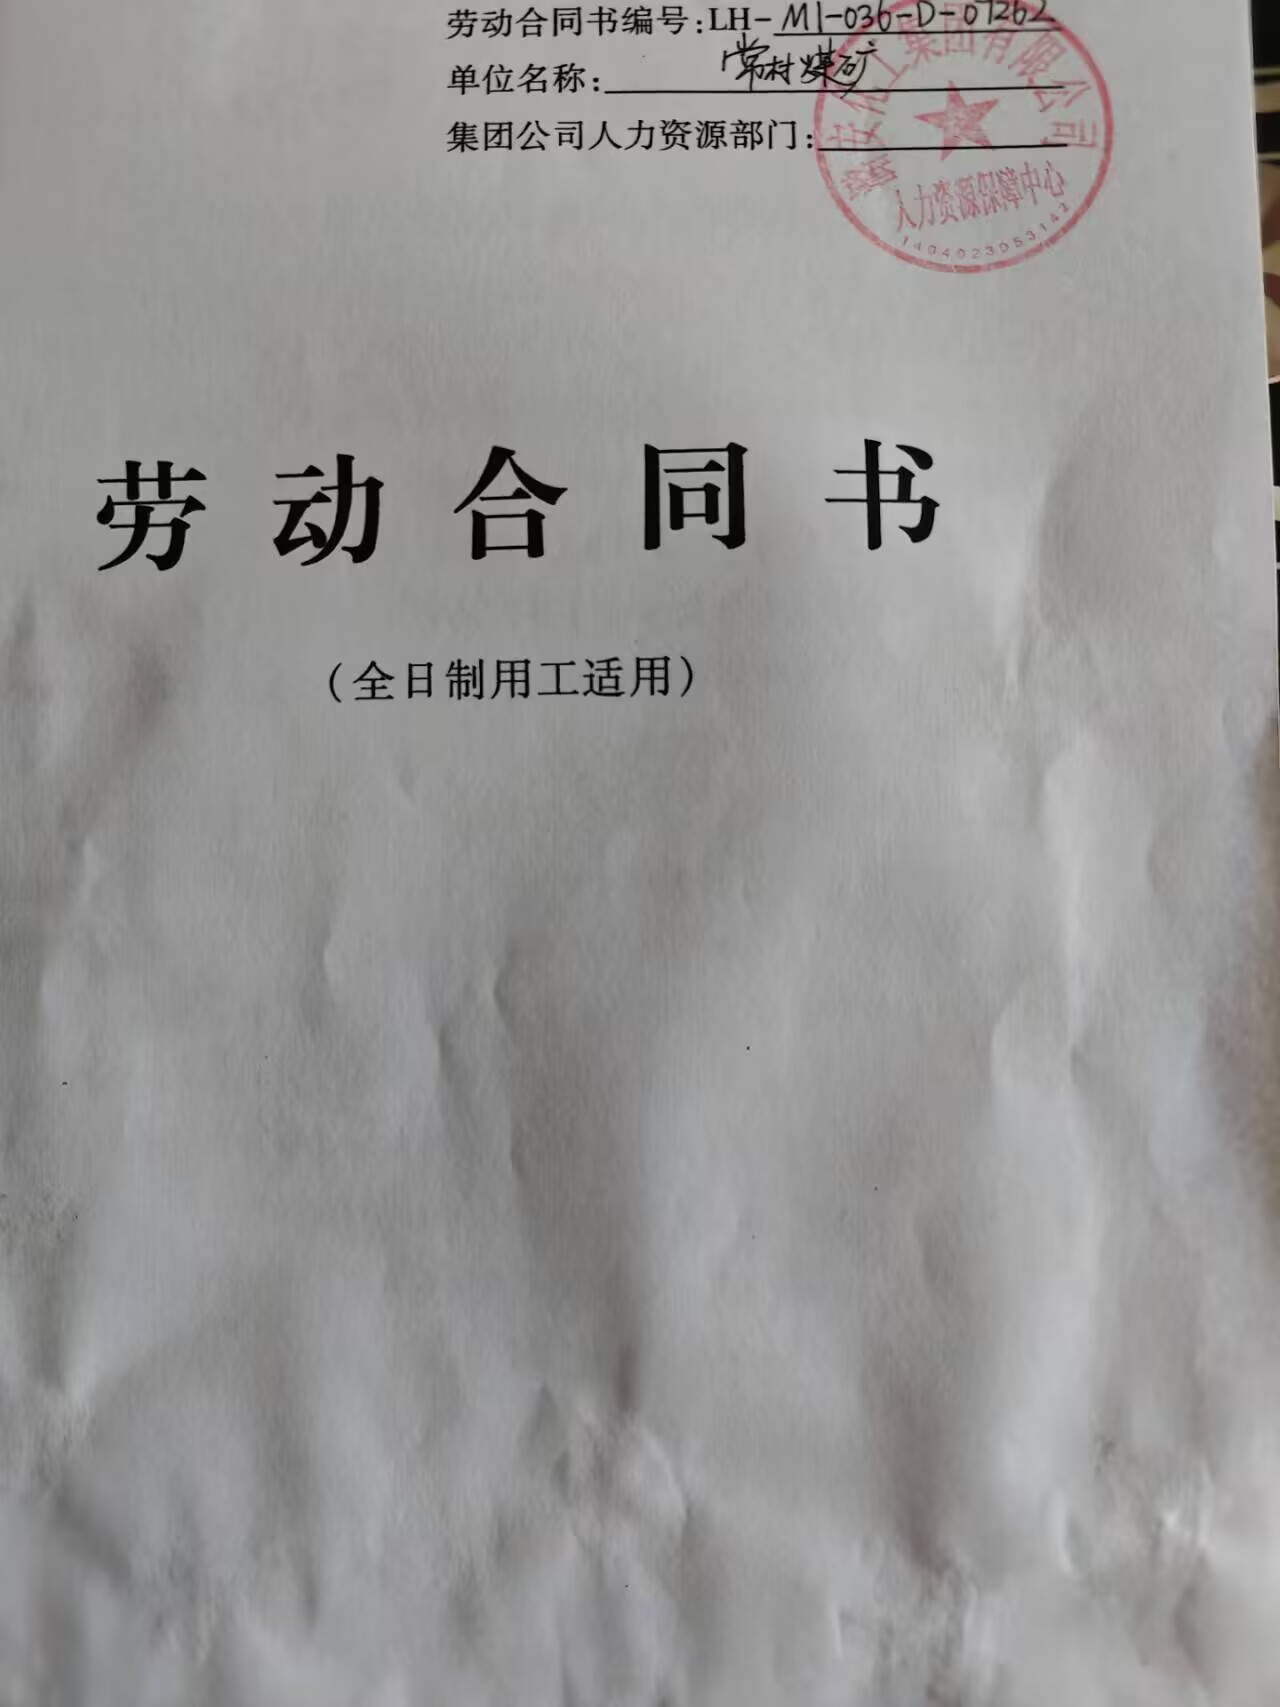 劳动合同书编号:LH-M1-036-D-07262
单位名称:常村煤矿
集团公司人力资源部门:
潞安化工集团有限公司
人力资源保障中心
1404023053142
劳动合同书
(全日制用工适用)